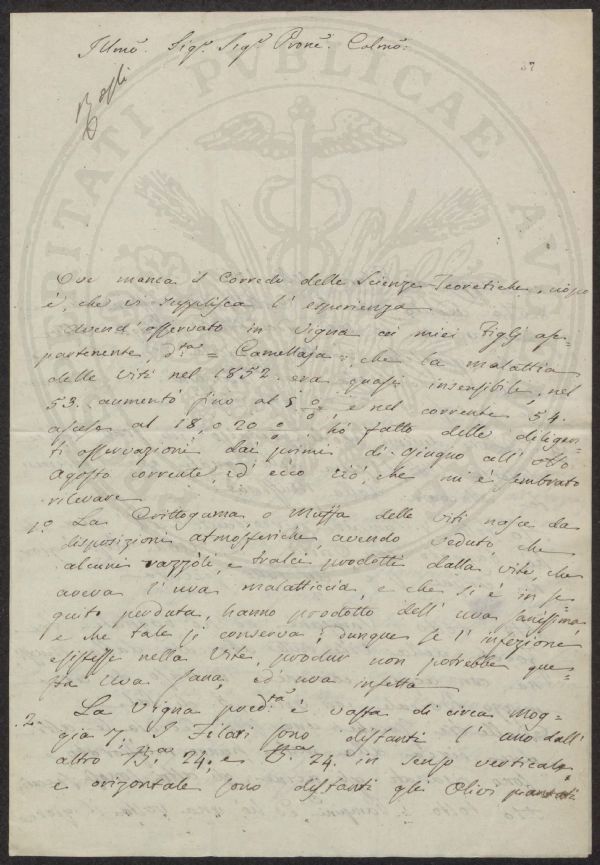 Illmo. Sigr. Sigr. Prone. Colmo:
37
Ove manca il Corredo delle Scienze Teoretiche, uopo
è, che vi supplisca l' esperienza
Avend' osservato in vigna ai miei Figlj ap-
partenente, dta = Camellaja =, che la malattia
delle viti nel 1852. era quasi insensibile, nel
53. aumentò fino al 5 %, e nel corrente 54.
ascese al 18, o 20 %, hò fatto delle diligen-
ti osservazioni dai primi di Giugno all' otto
Agosto corrente, ed ecco ciò, che mi è sembrato
rilevare
1.º La Crittogama o Muffa delle viti nasce da
disposizioni atmosferiche, avendo veduto, che
alcuni razzoli, e tralci prodotti dalla vite, che
aveva l' uva malatticcia, e che si è in se-
guito perduta, hanno prodotto dell' uva sanissima,
e che tale si conserva; dunque se l' infezione
esistesse nella vite, produr non potrebbe que-
sta uva sana, ed uva infetta
2. La vigna predta è vasta di circa mog-
gia 7. I Filari sono distanti l' uno dall'
altro 24. e 24. in senso verticale,
e orizontale sono distanti gli Olivi piantati
RITATI PVBLICAE AV